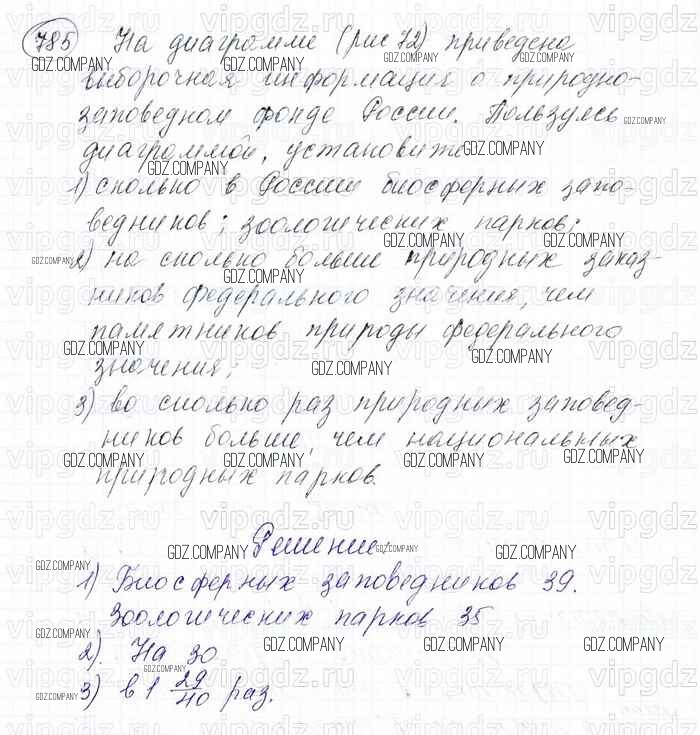 785 На диаграмме (рис 72) приведена
выборочная информация о природно-
заповедном фонде России. Пользуясь
диаграммой, установите
1) сколько в России биосферных запо-
ведников; зоологических парков;
2) на сколько больше природных заказ-
ников федерального значения, чем
памятников природы федерального
значения;
3) во сколько раз природных заповед-
ников больше, чем национальных
природных парков.
Решение:
1) Биосферных заповедников 39.
Зоологических парков 35
2). На 30
3) в 1 29/40 раз.